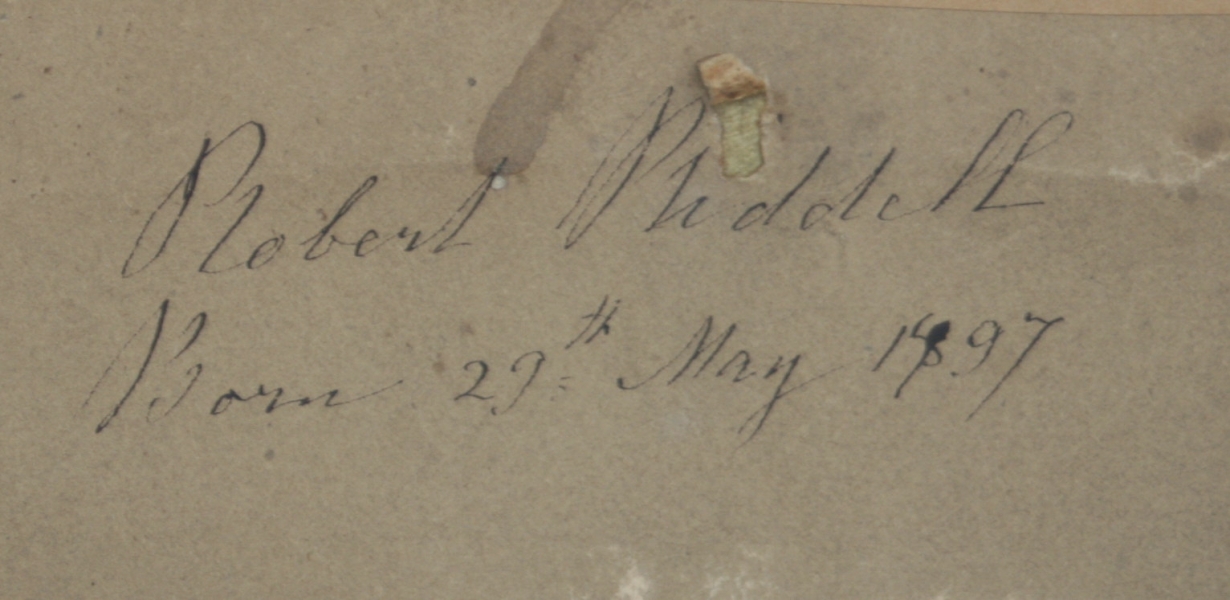 Robert Riddell
Born 29th May 1897